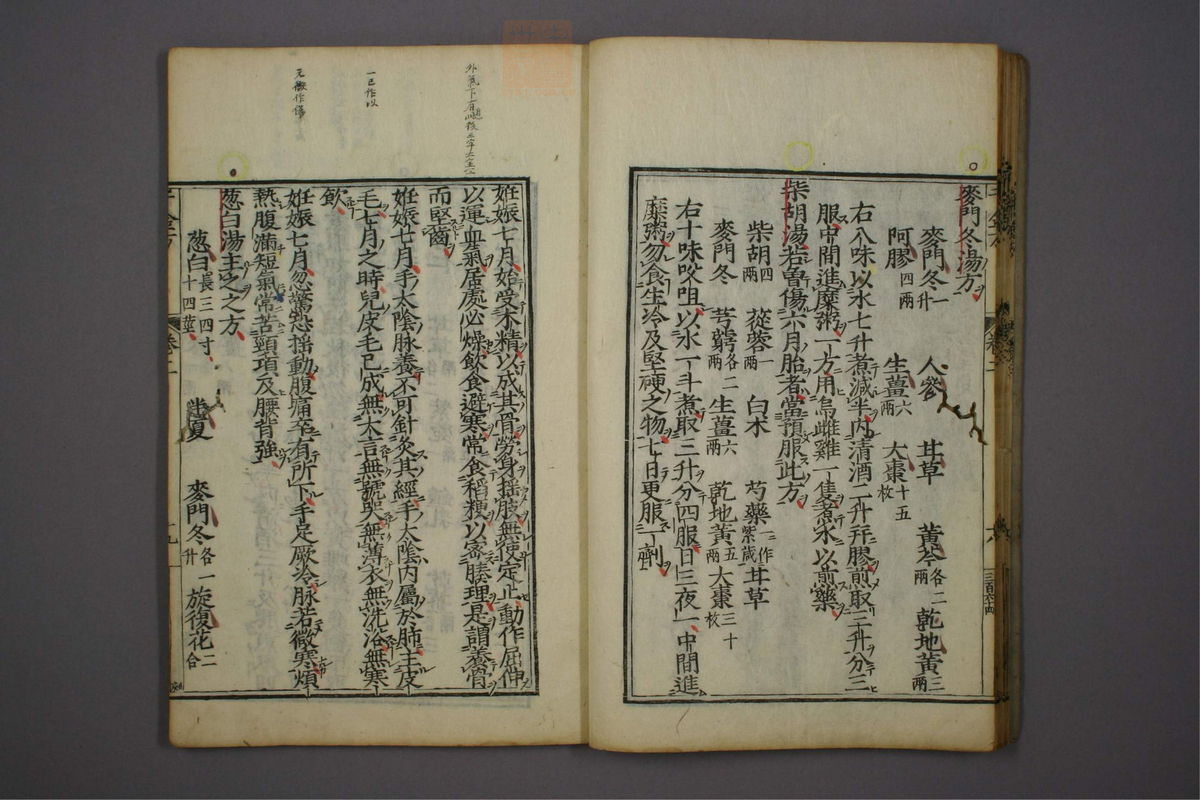 麥門冬湯方
麥門冬一升 人參 甘草 黃芩各二兩 乾地黃三兩
阿膠四兩 生薑六兩 大棗十五枚
右八味以水七升煮減半內清酒二升并膠煎取三升分三
服中間進糜粥一方用烏雌雞一隻煮水以煎藥
柴胡湯若曾傷六月胎者當預服此方
柴胡四兩 蓯蓉一兩 白朮 芍藥一作紫葳 甘草
麥門冬 芎藭各二兩 生薑六兩 乾地黃五兩 大棗三十枚
右十味㕮咀以水一斗煮取三升分四服日三夜一中間進
糜粥勿食生冷及堅硬之物七日更服一劑
卷二
六
三百六十四
妊娠七月始受木精以成其骨勞身搖肢無使定止動作屈伸
以運血氣居處必燥飲食避寒常食稻粳以密腠理是謂養骨
而堅齒
妊娠七月手太陰脉養不可針灸其經手太陰內屬於肺主皮
毛七月之時兒皮毛已成無大言無號哭無薄衣無洗浴無寒
飲
妊娠七月忽驚恐搖動腹痛卒有所下手足厥冷脉若微寒煩
熱腹滿短氣常苦頸項及腰背強
葱白湯主之之方
葱白長三四寸十四莖 半夏 麥門冬各一升 旋復花二合
卷二
一已作以